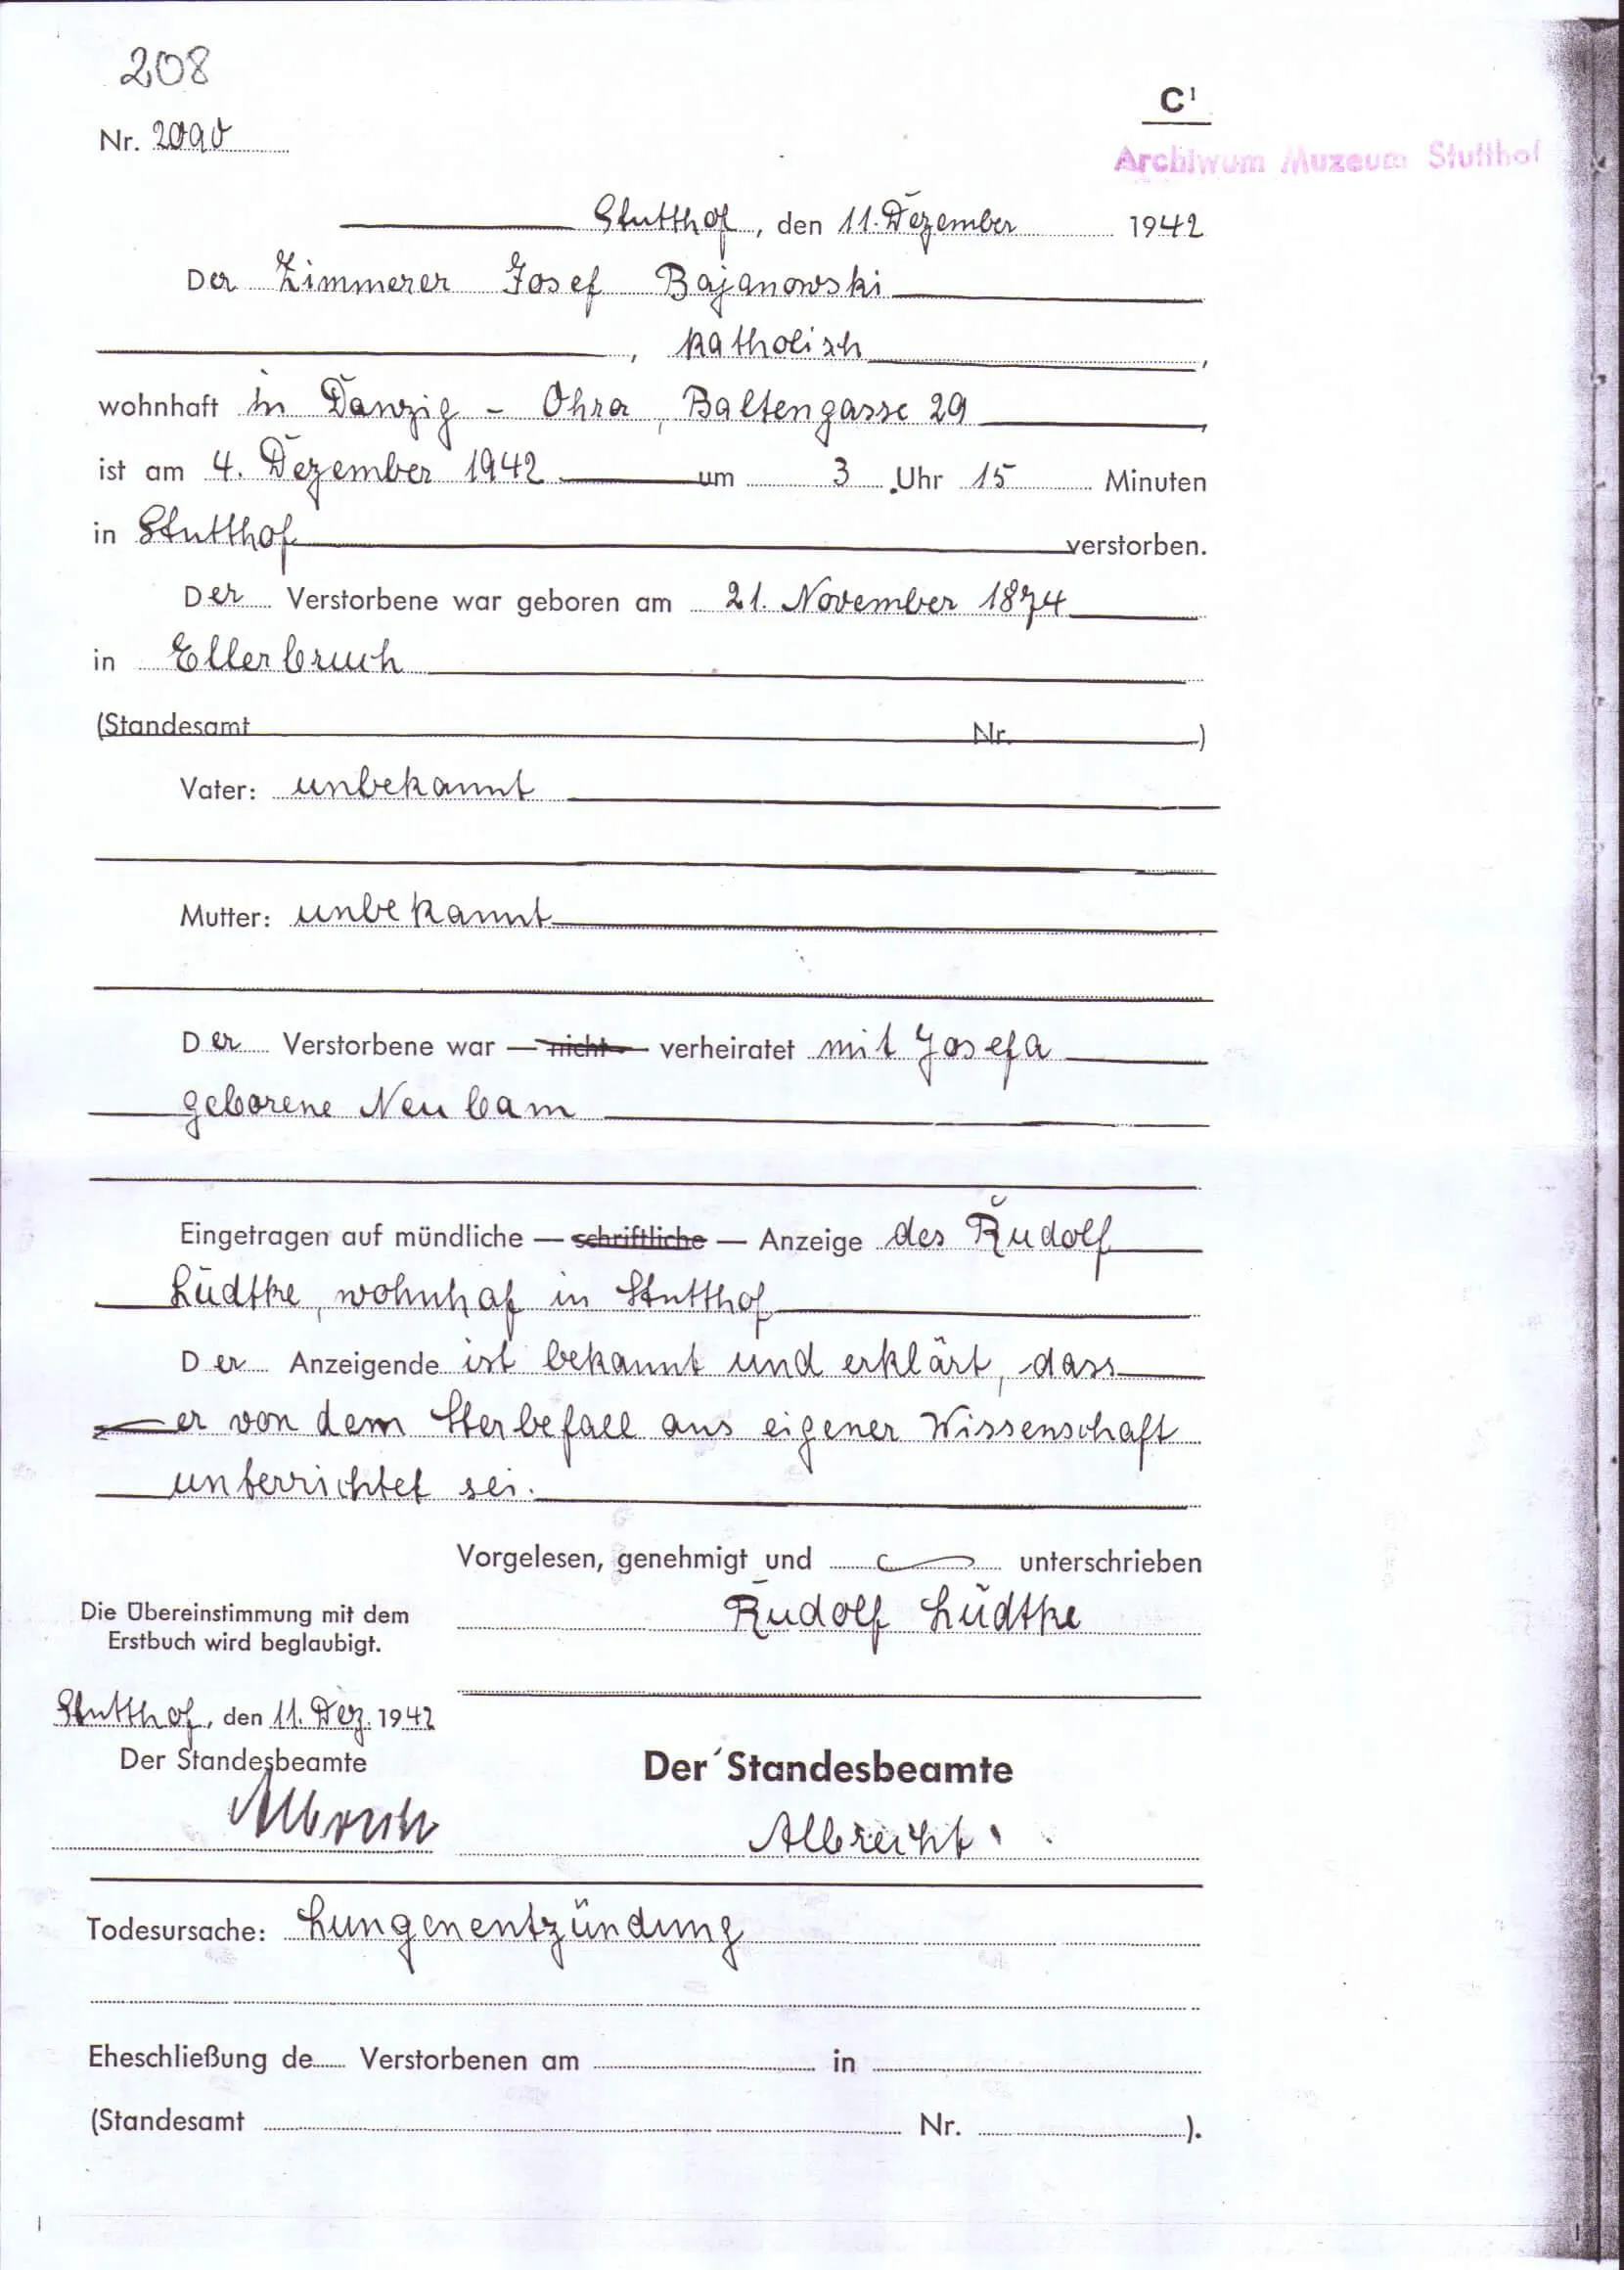 208
C¹
Nr. 2090
Archiwum Muzeum Stutthof
Stutthof, den 11. Dezember 1942
Der Zimmerer Josef Bajanowski
, katholisch,
wohnhaft in Danzig - Ohra, Baltengasse 29,
ist am 4. Dezember 1942 um 3 Uhr 15 Minuten
in Stutthof verstorben.
Der Verstorbene war geboren am 21. November 1874
in Ellerbruch
(Standesamt Nr. )
Vater: unbekannt
Mutter: unbekannt
Der Verstorbene war — nicht — verheiratet mit Josefa
geborene Neubam
Eingetragen auf mündliche — schriftliche — Anzeige des Rudolf
Lüdtke, wohnhaf in Stutthof
Der Anzeigende ist bekannt und erklärt, dass
er von dem Sterbefall aus eigener Wissenschaft
unterrichtet sei.
Vorgelesen, genehmigt und unterschrieben
Rudolf Lüdtke
Die Übereinstimmung mit dem
Erstbuch wird beglaubigt.
Stutthof, den 11. Dez. 1942
Der Standesbeamte
Albrecht
Der Standesbeamte
Albrecht
Todesursache: Lungenentzündung
Eheschließung de Verstorbenen am in
(Standesamt Nr. ).